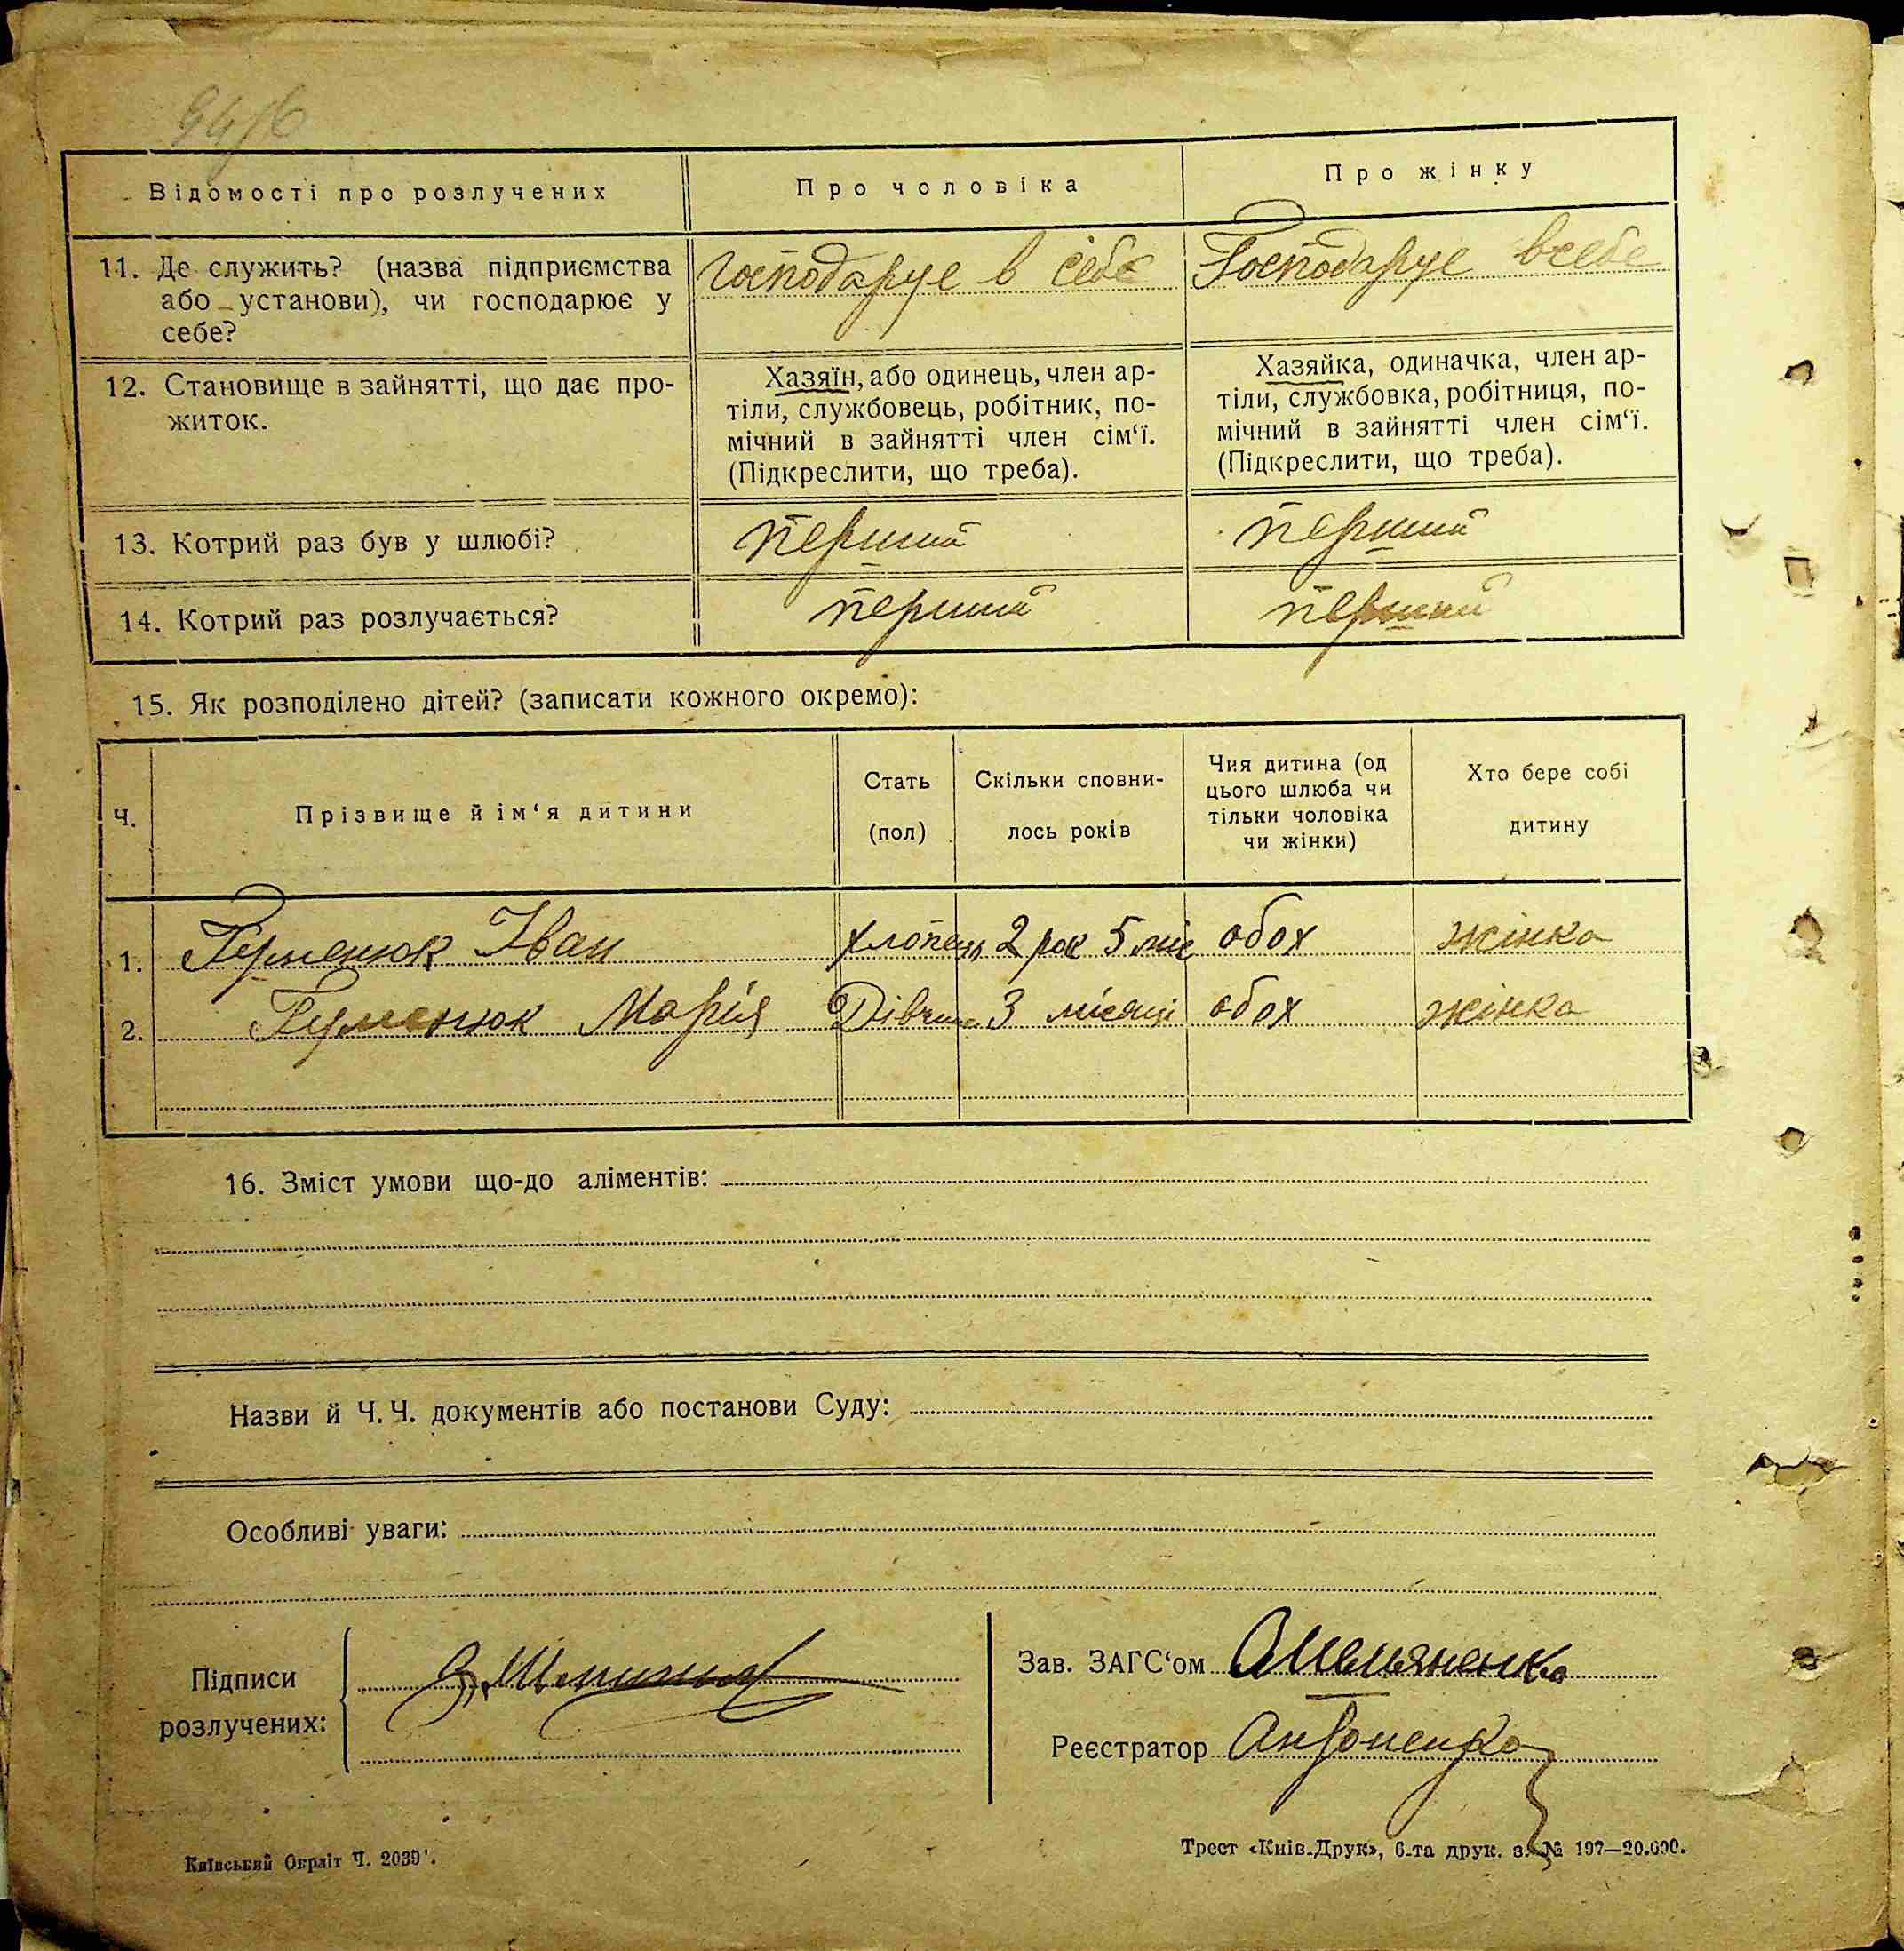 Відомості про розлучених
Про чоловіка
Про жінку
11. Де служить? (назва підприємства
або установи), чи господарює у
себе?
Господарує в себе
Господарує всебе
12. Становище в зайнятті, що дає про-
житок.
Хазяїн, або одинець, член ар-
тіли, службовець, робітник, по-
мічний в зайнятті член сім‘ї.
(Підкреслити, що треба).
Хазяйка, одиначка, член ар-
тіли, службовка, робітниця, по-
мічний в зайнятті член сім‘ї.
(Підкреслити, що треба).
13. Котрий раз був у шлюбі?
перший
перший
14. Котрий раз розлучається?
перший
перший
15. Як розподілено дітей? (записати кожного окремо):
Ч.
Прізвище й ім‘я дитини
Стать
(пол)
Скільки сповни-
лось років
Чия дитина (од
цього шлюба чи
тільки чоловіка
чи жінки)
Хто бере собі
дитину
1. Гуменюк Іван хлопець 2 рок 5 міс обох жінка
2. Гуменюк Марія Дівчина 3 місяці обох жінка
16. Зміст умови що-до аліментів:
Назви й Ч. Ч. документів або постанови Суду:
Особливі уваги:
Підписи
розлучених:
Зав. ЗАГС‘ом Омельяненко
Реєстратор Антоненко
Київський Окрліт Ч. 2039
Трест «Київ-Друк», 6-та друк. з. № 197—20.000.